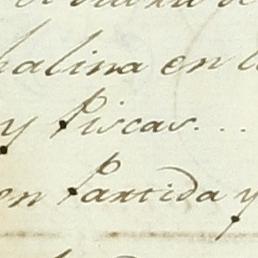 halina en l
y Piscas...
en Partida y